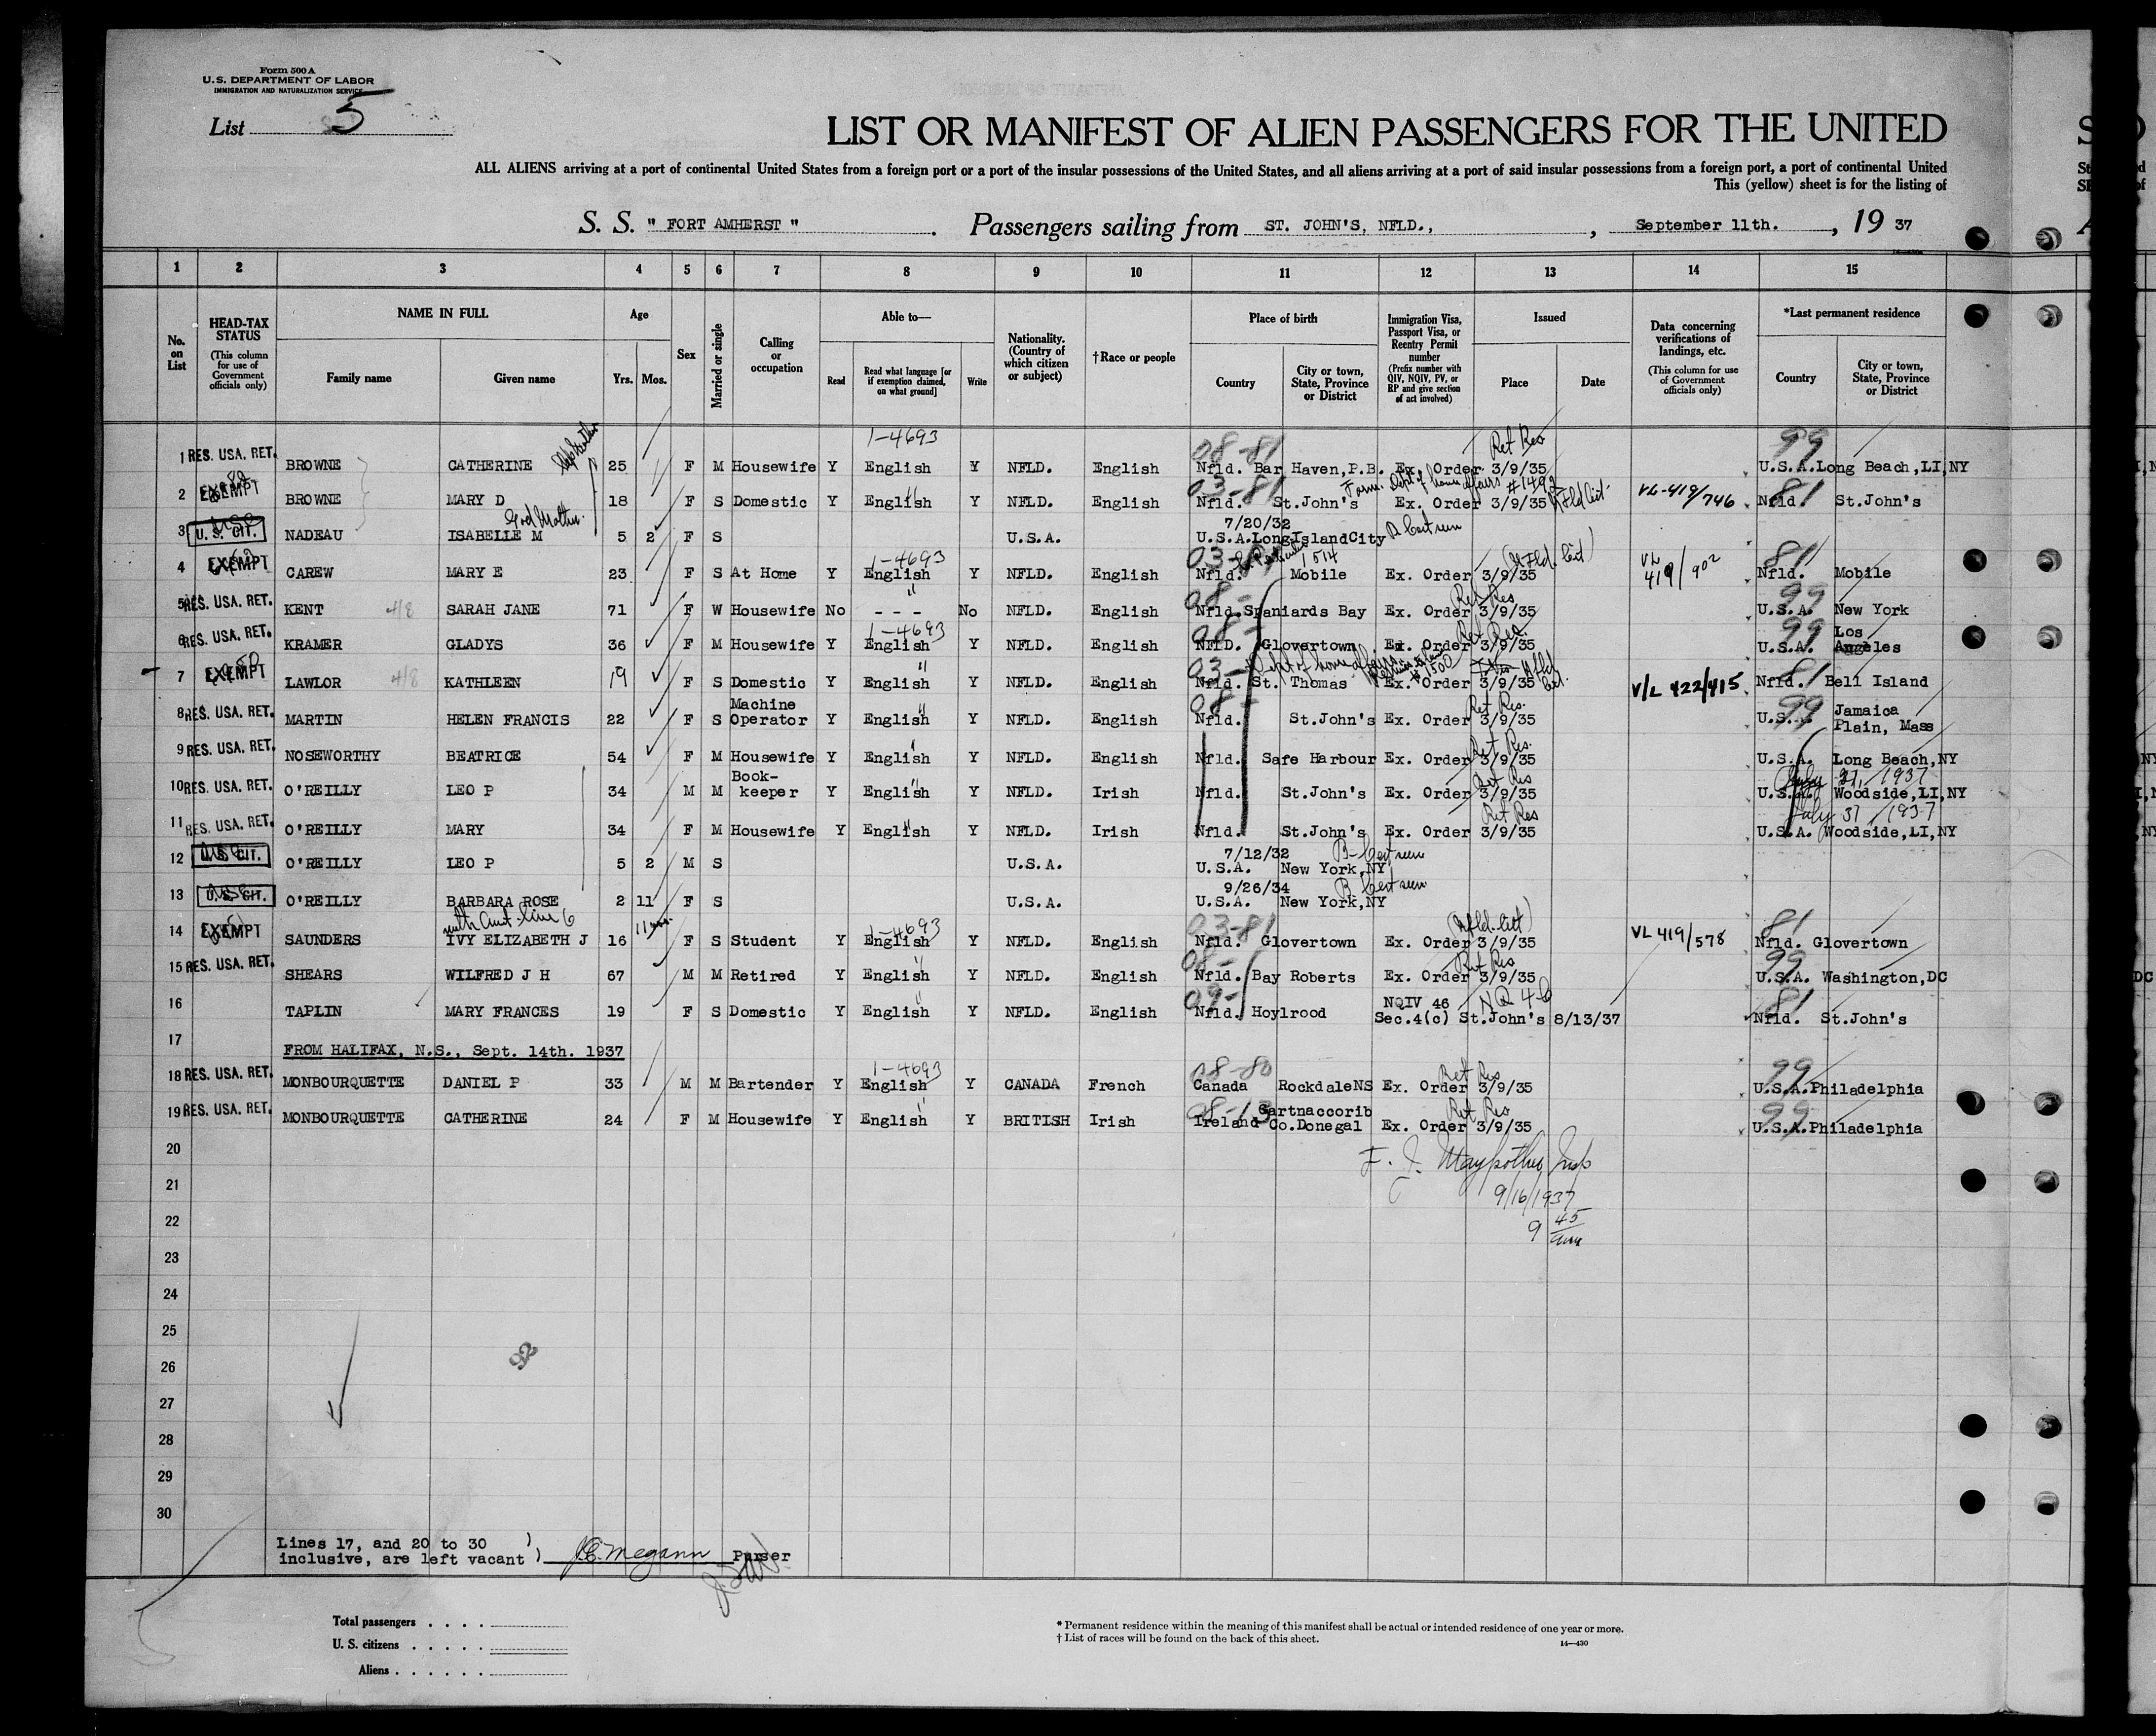 Form 500 A
U.S. DEPARTMENT OF LABOR
IMMIGRATION AND NATURALIZATION SERVICE
List 5
LIST OR MANIFEST OF ALIEN PASSENGERS FOR THE UNITED
ALL ALIENS arriving at a port of continental United States from a foreign port or a port of the insular possessions of the United States, and all aliens arriving at a port of said insular possessions from a foreign port, a port of continental United
This (yellow) sheet is for the listing of
S. S. " FORT AMHERST " . Passengers sailing from ST. JOHN'S, NFLD., , September 11th. , 19 37
1 2 3 4 5 6 7 8 9 10 11 12 13 14 15
No. on List
HEAD-TAX STATUS (This column for use of Government officials only)
NAME IN FULL
Family name
Given name
Age
Yrs. Mos.
Sex
Married or single
Calling or occupation
Able to—
Read
Read what language [or if exemption claimed, on what ground]
Write
Nationality. (Country of which citizen or subject)
†Race or people
Place of birth
Country
City or town, State, Province or District
Immigration Visa, Passport Visa, or Reentry Permit number (Prefix number with QIV, NQIV, PV, or RP and give section of act involved)
Issued
Place
Date
Data concerning verifications of landings, etc. (This column for use of Government officials only)
*Last permanent residence
Country
City or town, State, Province or District
1-4693 08-81 Ret Res 99
1 RES. USA. RET. BROWNE CATHERINE 25 F M Housewife Y English Y NFLD. English Nfld. Bar Haven,P.B. Ex. Order 3/9/35 U.S.A. Long Beach,LI,NY
03-81 #1492
2 EXEMPT BROWNE MARY D 18 F S Domestic Y English " Y NFLD. English Nfld. St.John's Ex. Order 3/9/35 VL-419/746 81 Nfld St.John's
God Mother 7/20/32
3 U.S. CIT. NADEAU ISABELLE M 5 2 F S U.S.A. U.S.A. LongIslandCity B Cert seen
1-4693 03-81 1514 (Nfld. Cert) 81
4 EXEMPT CAREW MARY E 23 F S At Home Y English Y NFLD. English Nfld. Mobile Ex. Order 3/9/35 VL 419/902 Nfld. Mobile
" 08- Ret Res 99
5 RES. USA. RET. KENT 4/8 SARAH JANE 71 F W Housewife No - - - No NFLD. English Nfld. Spaniards Bay Ex. Order 3/9/35 U.S.A. New York
1-4693 08- Ret Res. 99
6 RES. USA. RET. KRAMER GLADYS 36 F M Housewife Y English Y NFLD. English NFLD. Glovertown Ex. Order 3/9/35 U.S.A. Los Angeles
" 03- Dept of home affairs #1500 81
7 EXEMPT LAWLOR 4/8 KATHLEEN 19 F S Domestic Y English Y NFLD. English Nfld. St. Thomas Ex. Order 3/9/35 V/L 422/415 Nfld. Bell Island
" 08- Ret Res. 99
8 RES. USA. RET. MARTIN HELEN FRANCIS 22 F S Machine Operator Y English Y NFLD. English Nfld. St.John's Ex. Order 3/9/35 U.S. Jamaica Plain, Mass
" Ret Res.
9 RES. USA. RET. NOSEWORTHY BEATRICE 54 F M Housewife Y English Y NFLD. English Nfld. Safe Harbour Ex. Order 3/9/35 U.S.A. Long Beach,NY
" Ret Res July 31, 1937
10 RES. USA. RET. O'REILLY LEO P 34 M M Book-keeper Y English Y NFLD. Irish Nfld. St.John's Ex. Order 3/9/35 U.S.A. Woodside,LI,NY
" Ret Res July 31 1937
11 RES. USA. RET. O'REILLY MARY 34 F M Housewife Y English Y NFLD. Irish Nfld. St.John's Ex. Order 3/9/35 U.S.A. Woodside,LI,NY
7/12/32 B-Cert seen
12 U.S. CIT. O'REILLY LEO P 5 2 M S U.S.A. U.S.A. New York,NY
9/26/34 B Cert seen
13 U.S. CIT. O'REILLY BARBARA ROSE 2 11 F S U.S.A. U.S.A. New York,NY
with Aunt-line 6 11 mo. 1-4693 03-81 (Nfld. Cert) 81
14 EXEMPT SAUNDERS IVY ELIZABETH J 16 F S Student Y English Y NFLD. English Nfld. Glovertown Ex. Order 3/9/35 VL 419/578 Nfld. Glovertown
" 08- Ret Res 99
15 RES. USA. RET. SHEARS WILFRED J H 67 M M Retired Y English Y NFLD. English Nfld. Bay Roberts Ex. Order 3/9/35 U.S.A. Washington,DC
" 09- NQ 4-C 81
16 TAPLIN MARY FRANCES 19 F S Domestic Y English Y NFLD. English Nfld. Hoylrood NQIV 46 Sec.4(c) St.John's 8/13/37 Nfld. St.John's
17 FROM HALIFAX, N.S., Sept. 14th. 1937
1-4693 08-80 Ret Res 99
18 RES. USA. RET. MONBOURQUETTE DANIEL P 33 M M Bartender Y English Y CANADA French Canada RockdaleNS Ex. Order 3/9/35 U.S.A. Philadelphia
" 08-13 Ret Res 99
19 RES. USA. RET. MONBOURQUETTE CATHERINE 24 F M Housewife Y English Y BRITISH Irish Ireland Gartnaccorib Co.Donegal Ex. Order 3/9/35 U.S.A. Philadelphia
20
21 9/16/1937
22 9 45 am
23
24
25
26
92
27
28
29
30
Lines 17, and 20 to 30 )
inclusive, are left vacant ) Purser
Total passengers . . . .
U. S. citizens . . . . .
Aliens . . . . . .
* Permanent residence within the meaning of this manifest shall be actual or intended residence of one year or more.
† List of races will be found on the back of this sheet.
14—430